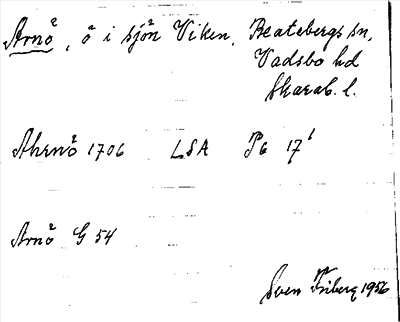 Arnö, ö i sjön Viken, Beatebergs sn,
Vadsbo hd
Skarab. l.
Ahrnö 1706 LSA P6 17¹
Arnö G 54
Sven Friberg 1956